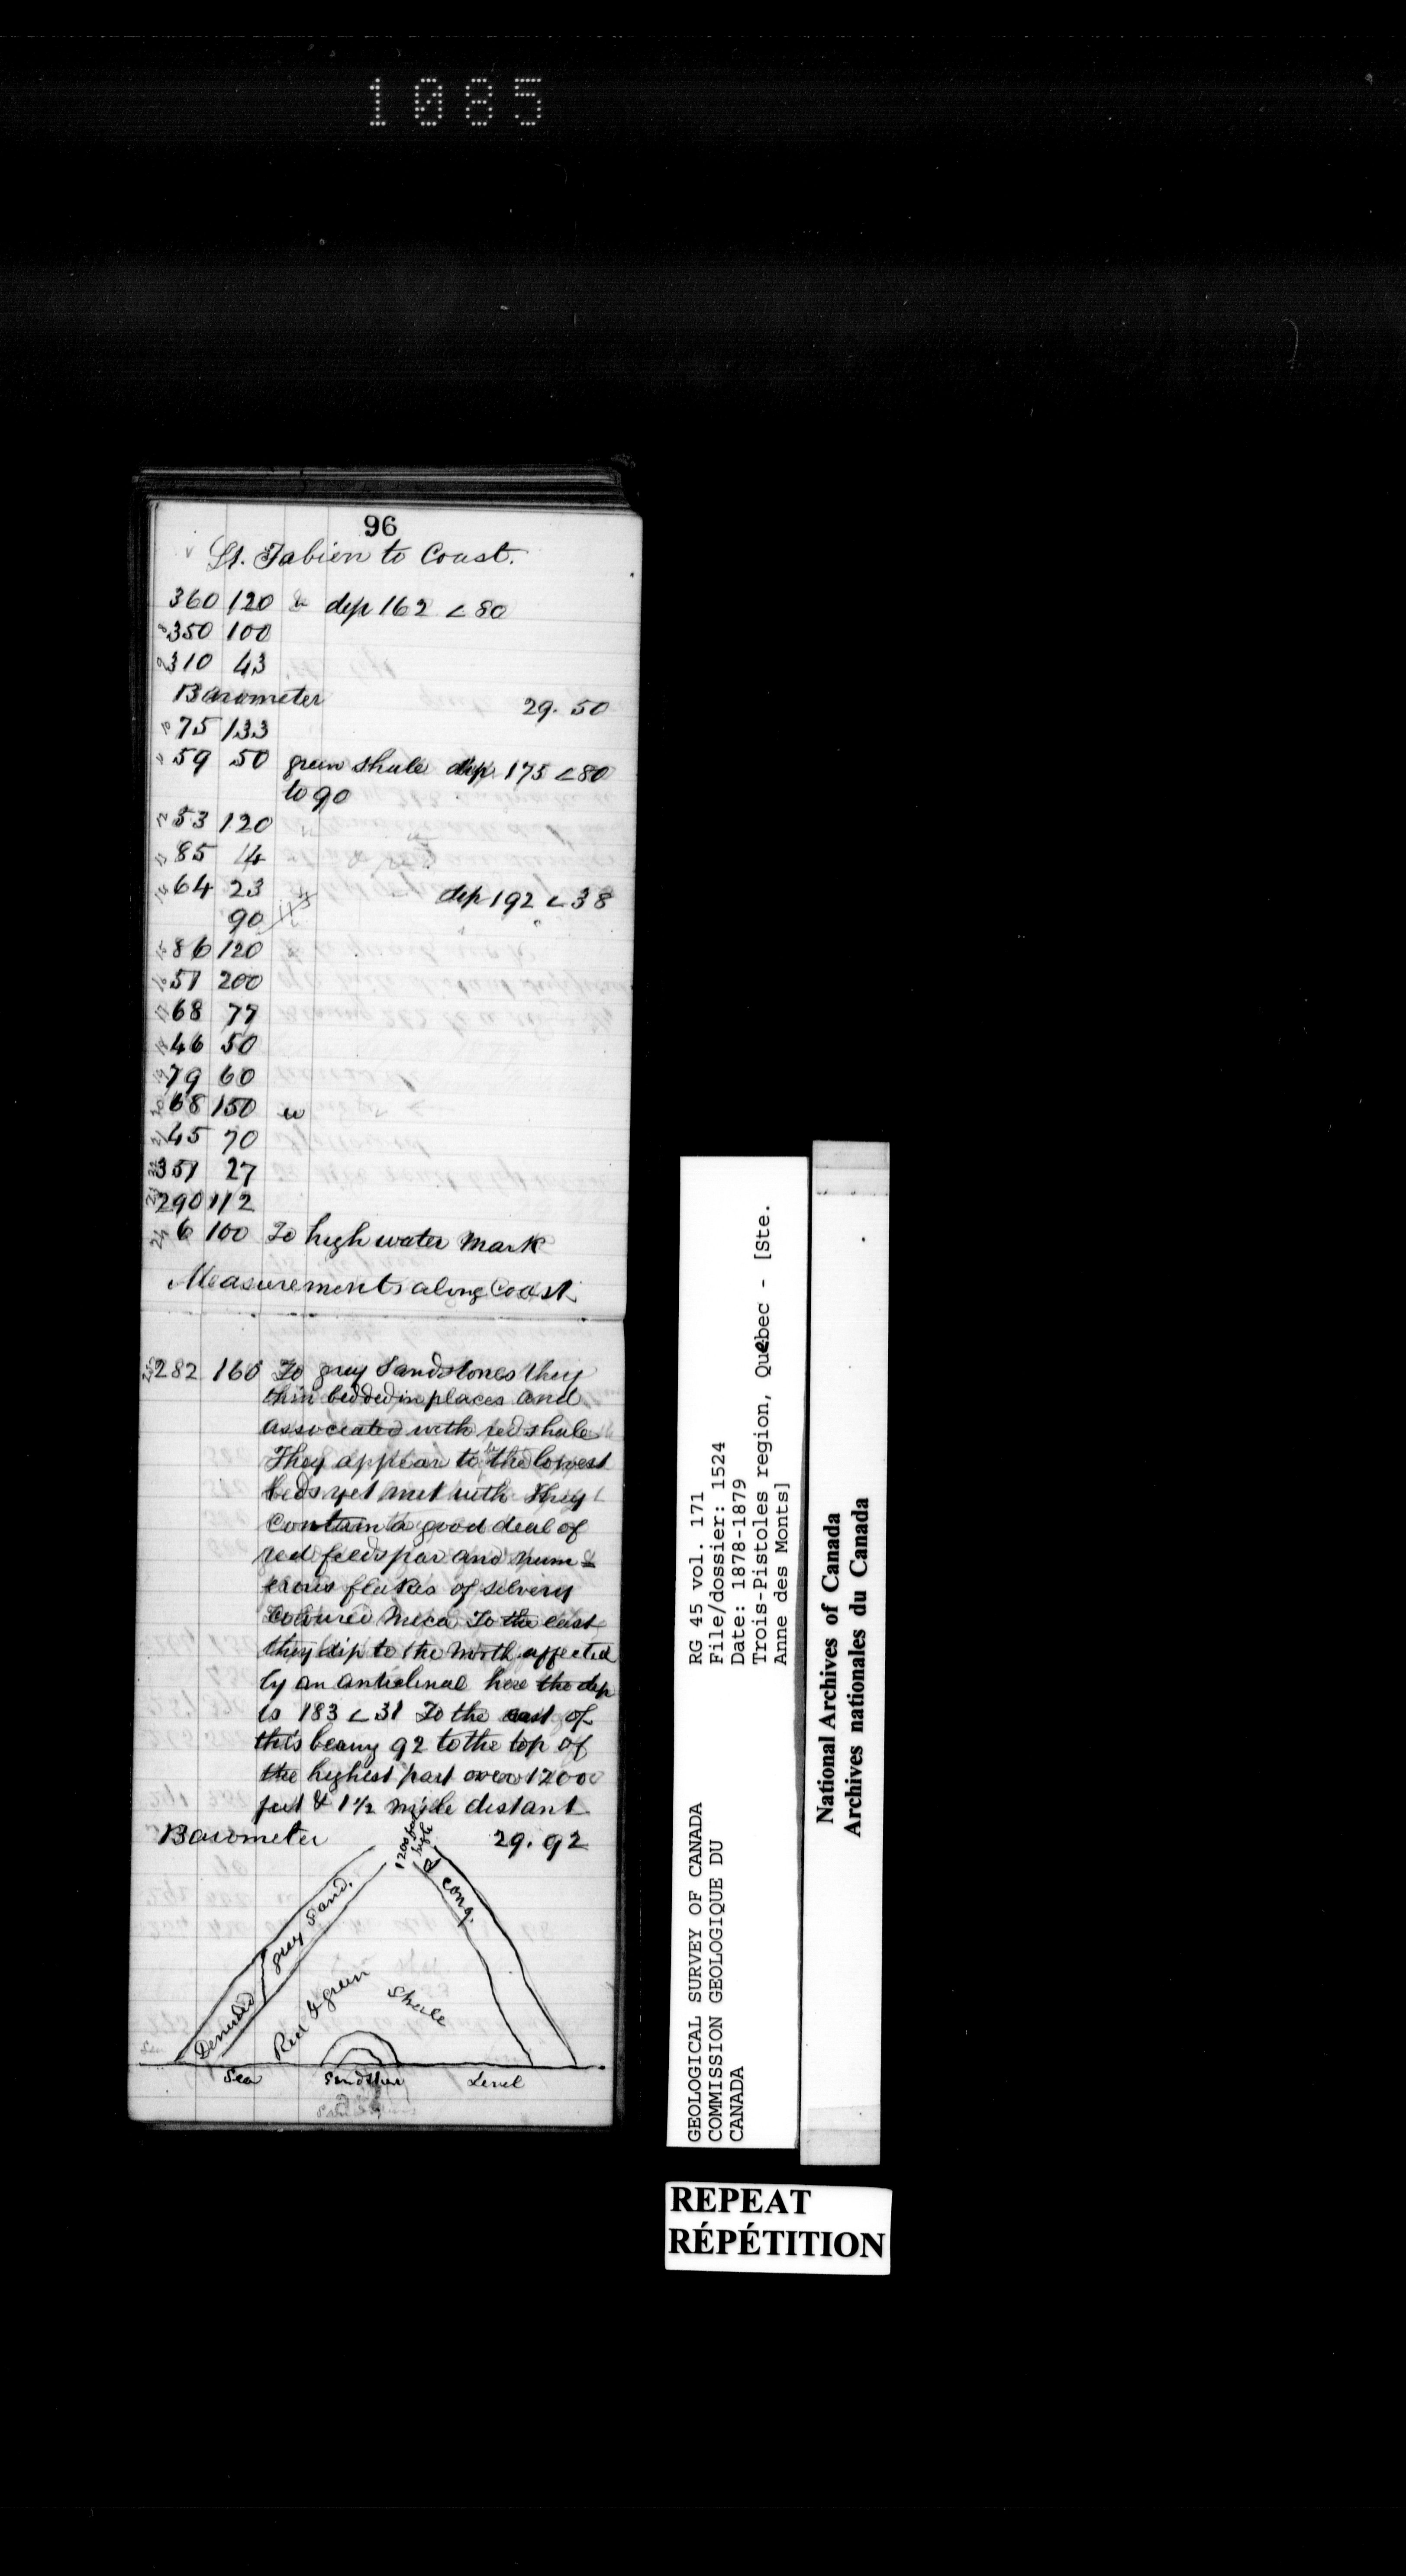 1085
96
St. Fabien to Coast.
360 120 dip 162 < 80
8 350 100
9 310 43
Barometer 29. 50
10 75 133
11 59 50 green shale dip 175 < 80
to 90
12 53 120
13 85 14
14 64 23 dip 192 < 38
90
15 86 120
16 57 200
17 68 77
18 46 50
19 79 60
20 68 150 "
21 45 70
22 357 27
23 290 112
24 6 100 To high water mark
Measurements along Coast.
25 282 160 To grey Sandstones they
thin bedded in places and
associated with red shale
They appear to be the lowest
beds yet met with They
contain a good deal of
red feldspar and num-
erous flakes of silvery
coloured Mica To the east
they dip to the north affected
by an anticlinal here the dip
is 183 < 31 To the east of
this bearing 92 to the top of
the highest part over 1200
feet & 1 1/2 mile distant
Barometer 29. 92
1200 feet
high
grey Sand.
cong.
Denuded
Red & green Shale
Sea Sandstone Level
RG 45 vol. 171
File/dossier: 1524
Date: 1878-1879
Trois-Pistoles region, Québec - [Ste.
Anne des Monts]
GEOLOGICAL SURVEY OF CANADA
COMMISSION GEOLOGIQUE DU
CANADA
National Archives of Canada
Archives nationales du Canada
REPEAT
RÉPÉTITION